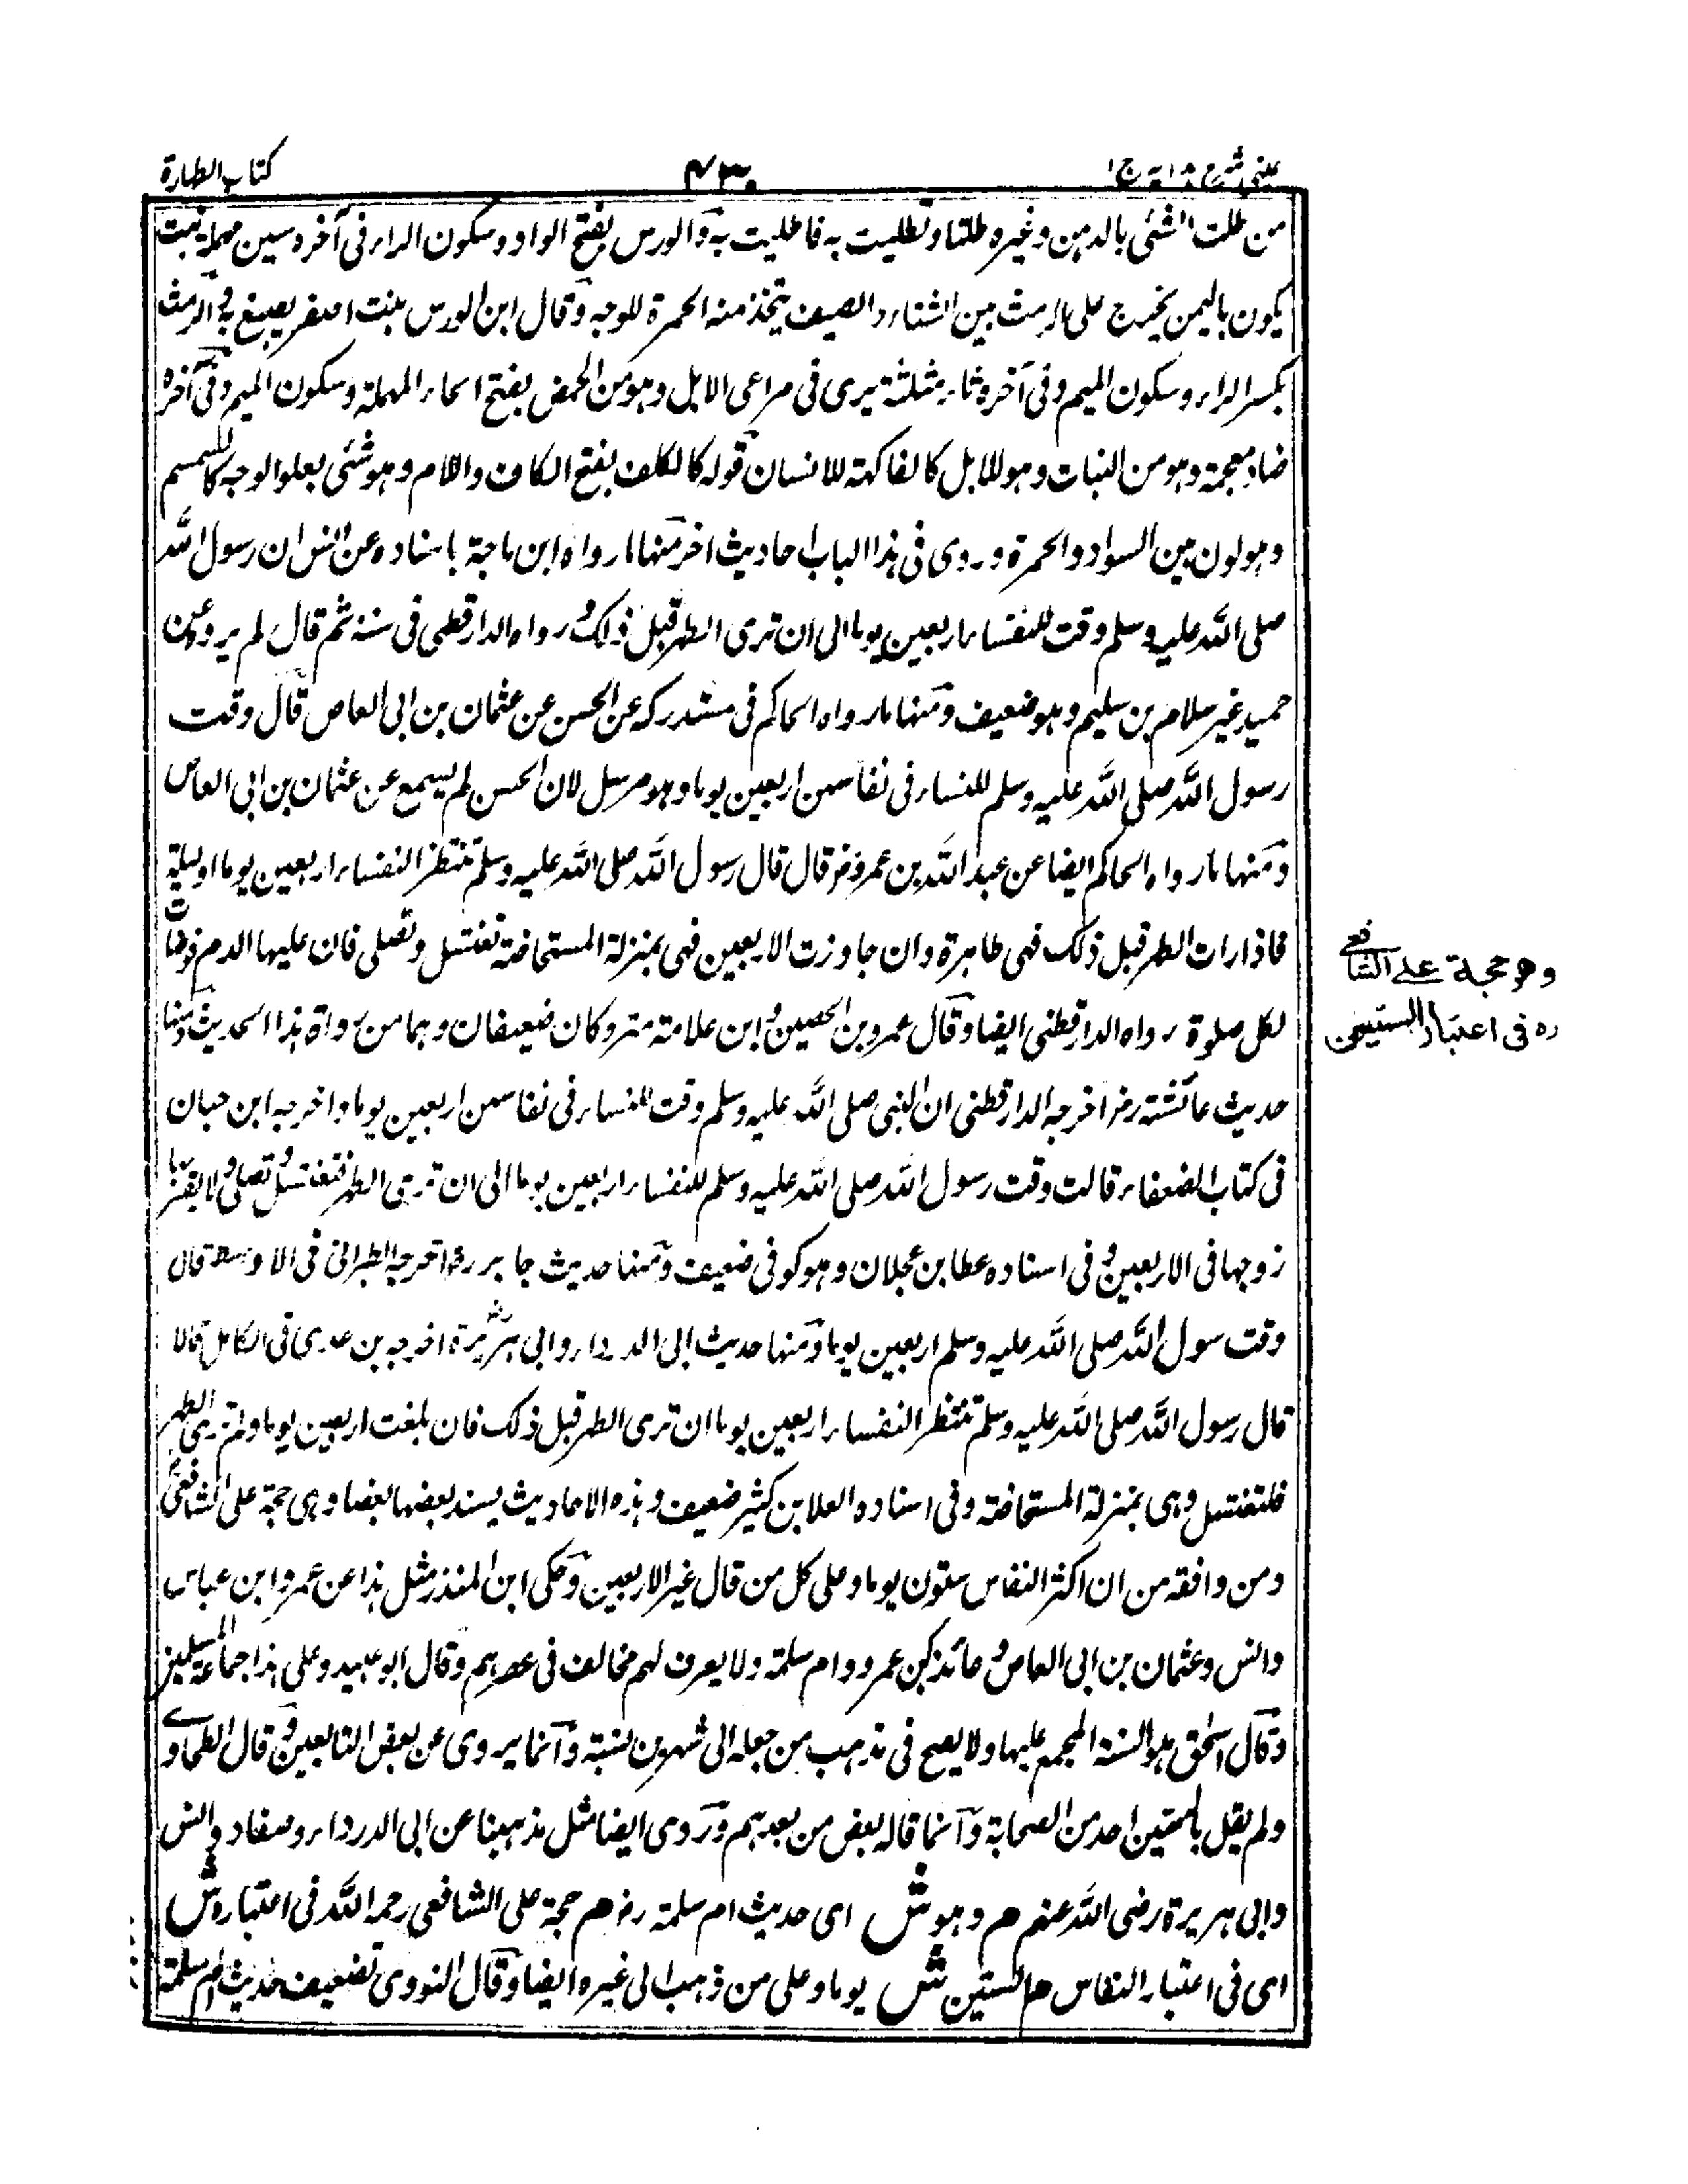 عینی شرح ہدایہ ج ا
۴۳۰
کتاب الطہارۃ
من طلت الشئی بالدہن وغیرہ طلتا وتطلیت بہ فاطلیت بہ والورس بفتح الواو وسکون الراء فی آخرہ سین مہملۃ نبت
یکون بالیمن یخرج علی الرمث بین الشتاء والصیف یتخذ منہ الحمرۃ للوجہ وقال ابن الورس بنت اصفر یصبغ بہ والرمث
بکسر الراء وسکون المیم وفی آخرہ ثاء مثلثۃ یری فی مراعی الابل وہو من الحمض بفتح الحاء المہملۃ وسکون المیم وفی آخرہ
ضاد معجمۃ وہو من النبات وہو للابل کالفاکہۃ للانسان قولہ کالکلف بفتح الکاف واللام وہو شئی یعلو الوجہ کالسمسم
وہو لون بین السواد والحمرۃ وروی فی ہذا الباب احادیث اخر منہا ما رواہ ابن ماجۃ باسنادہ عن انس ان رسول اللہ
صلی اللہ علیہ وسلم وقت للنفساء اربعین یوما الی ان تری الطہر قبل ذلک ورواہ الدارقطنی فی سننہ ثم قال لم یروہ عن
حمید غیر سلام بن سلیم وہو ضعیف ومنہا ما رواہ الحاکم فی مستدرکہ عن الحسن عن عثمان بن ابی العاص قال وقت
رسول اللہ صلی اللہ علیہ وسلم للنساء فی نفاسہن اربعین یوما وہو مرسل لان الحسن لم یسمع عن عثمان بن ابی العاص
ومنہا ما رواہ الحاکم ایضا عن عبد اللہ بن عمرو رض قال قال رسول اللہ صلی اللہ علیہ وسلم تنتظر النفساء اربعین یوما او لیلۃ
فاذا رات الطہر قبل ذلک فہی طاہرۃ وان جاوزت الاربعین فہی بمنزلۃ المستحاضۃ تغتسل وتصلی فان علیہا الدم توضات
لکل صلوۃ رواہ الدارقطنی ایضا وقال عمرو بن الحصین وابن علاثۃ متروکان ضعیفان وہما من رواۃ ہذا الحدیث ومنہا
حدیث عائشۃ رض اخرجہ الدارقطنی ان النبی صلی اللہ علیہ وسلم وقت للنساء فی نفاسہن اربعین یوما واخرجہ ابن حبان
فی کتاب الضعفاء قالت وقت رسول اللہ صلی اللہ علیہ وسلم للنفساء اربعین یوما الی ان تری الطہر فتغتسل وتصلی ولا یقربہا
زوجہا فی الاربعین وفی اسنادہ عطا بن عجلان وہو کوفی ضعیف ومنہا حدیث جابر رض اخرجہ الطبرانی فی الاوسط قال
وقت رسول اللہ صلی اللہ علیہ وسلم اربعین یوما ومنہا حدیث ابی الدرداء وابی ہریرۃ اخرجہ بن عدی فی الکامل قالا
قال رسول اللہ صلی اللہ علیہ وسلم تنتظر النفساء اربعین یوما ان تری الطہر قبل ذلک فان بلغت اربعین یوما ولم تری الطہر
فلتغتسل وہی بمنزلۃ المستحاضۃ وفی اسنادہ العلا بن کثیر ضعیف وہذہ الاحادیث یسند بعضہا بعضا وہی حجۃ علی الشافعی
ومن وافقہ من ان اکثر النفاس ستون یوما وعلی کل من قال غیر الاربعین وحکی ابن المنذر مثل ہذا عن عمر وابن عباس
وانس وعثمان بن ابی العاص وعائذ بن عمرو وام سلمۃ ولا یعرف لہم مخالف فی عصرہم وقال ابو عبید وعلی ہذا جماعۃ المسلمین
وقال اسحٰق ہو السنۃ المجمع علیہا ولا یصح فی مذہب من جعلہ الی شہرین سنۃ وانما یروی عن بعض التابعین وقال الطحاوے
ولم یقل بالستین احد من الصحابۃ وانما قالہ بعض من بعدہم وروی ایضا مثل مذہبنا عن ابی الدرداء ومعاذ وانس
وابی ہریرۃ رضی اللہ عنہم م وہو ش ای حدیث ام سلمۃ رض م حجۃ علی الشافعی رحمہ اللہ فی اعتبارہ ش
ای فی اعتبار النفاس م الستین ش یوما وعلی من ذہب الی غیرہ ایضا وقال النووی تضعیف حدیث ام سلمۃ
وهو حجۃ علے الشافعے
رہ فی اعتبار الستین